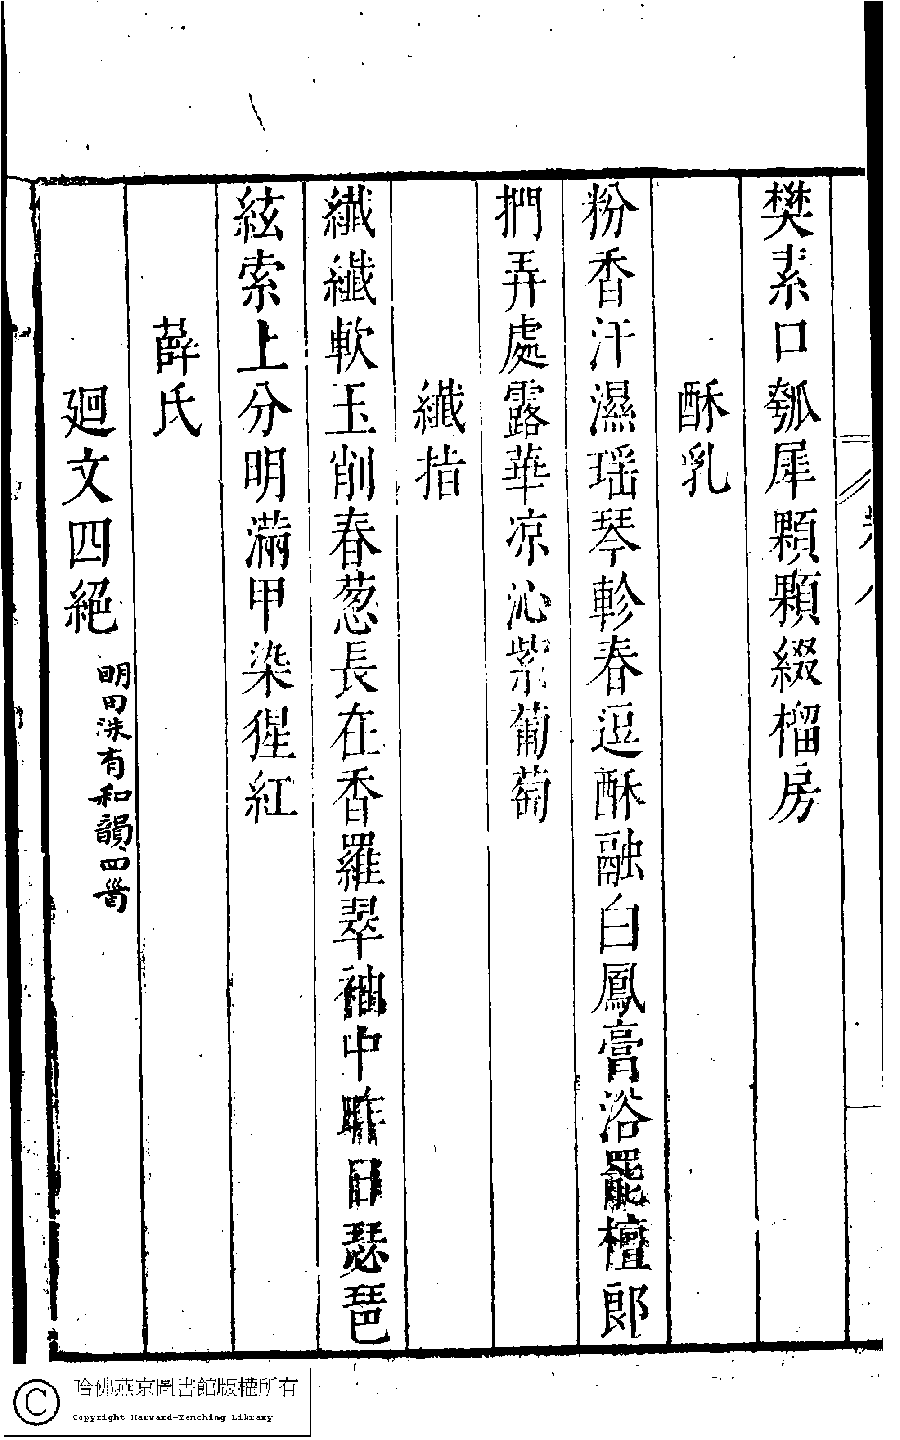 樊素口瓠犀顆顆綴榴房
酥乳
粉香汗濕瑶琴軫春逗酥融白鳳膏浴罷檀郎
捫弄處露華凉沁紫葡萄
纖指
纖纖軟玉削春葱長在香羅翠袖中昨日琵琶
絃索上分明滿甲染猩紅
薛氏
廻文四絕
明田洙有和韻四首
哈佛燕京圖書館版權所有
Copyright Harvard-Yenching Library